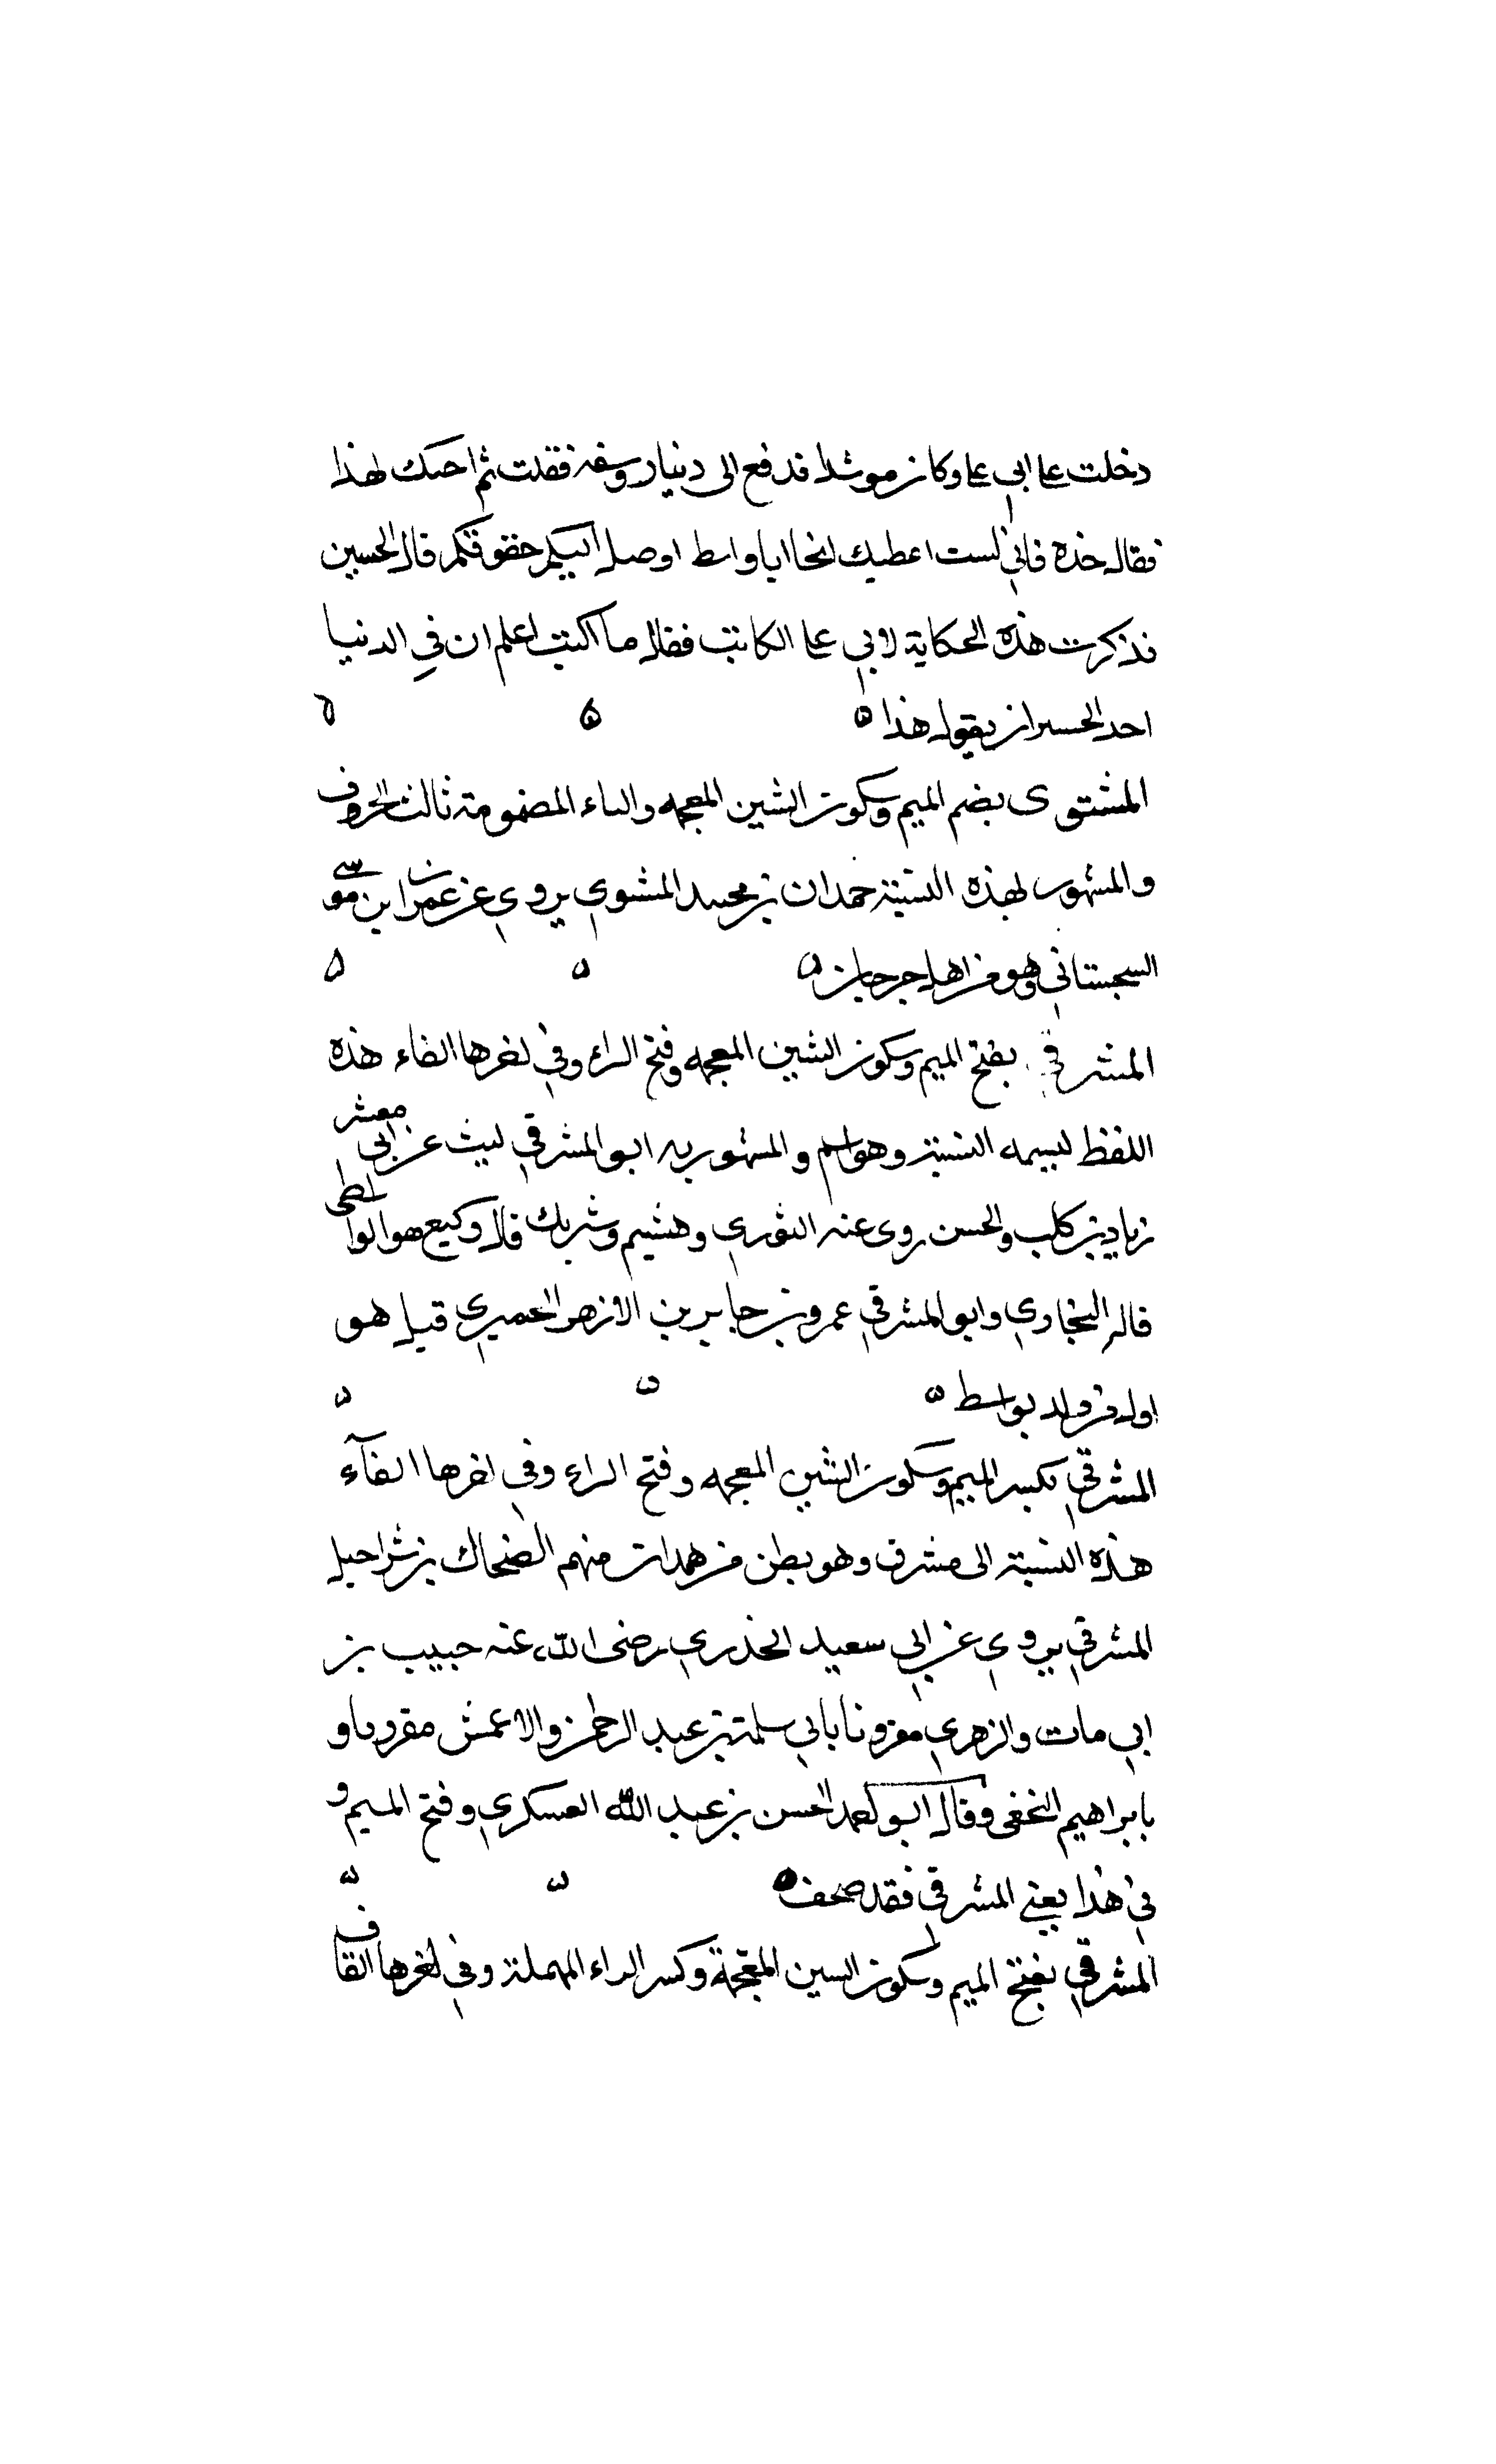 دخلت على ابي على وكان موشلا فدفع الى دنيار وسفه فقلت ثم احبك لهذا
فقال خذه فاني لست اعطيك انما ابا واسط اوصل اليكم حقوقكم قال الحسين
فذكرت هذه الحكاية لابي على الكاتب فقال ما اكتب اعلم ان في الدنيا
احد الحسن ان يقول هذا
المشتوى بضم الميم وسكون الشين المعجمه والتاء المضمومة ثالث الحروف
والمشهور بهذه النسبة حمدان بن محمد المشتوي يروي عن عمران ابن موسى
السجستاني وهو من اهل جرجان
المشرفي بفتح الميم وسكون الشين المعجمه وفتح الراء وفي اخرها الفاء هذه
اللفظ لشبهه النسبة وهو اسم والمشهور به ابو المشرفي ليث عن ابي معشر
زياد بن كلب والحسن روى عنه الثوري وهشيم وشريك قال وكيع هو الواسطى
قال البخاري وابو المشرفي عمرو بن جابر بن الازهر الحميري قيل هو
اول من ولد بواسط
المشرفي بكسر الميم وسكون الشين المعجمه وفتح الراء وفي اخرها الفآء
هذه النسبة الى مشرف وهو بطن من همدان منهم الضحاك بن شراحيل
المشرفي يروي عن ابي سعيد الخذري رضى الله عنه حبيب بن
ابي مات والزهري مقرونا بابي سلمة بن عبد الرحمن والاعمش مقرونا و
بابراهيم النخعى وقال ابو احمد الحسن بن عبد الله العسكري وفتح الميم و
في هذا يعني المشرفي فقد صحف
المشرقي بفتح الميم وسكون الشين المعجمة وكسر الراء المهملة وفي اخرها القاف